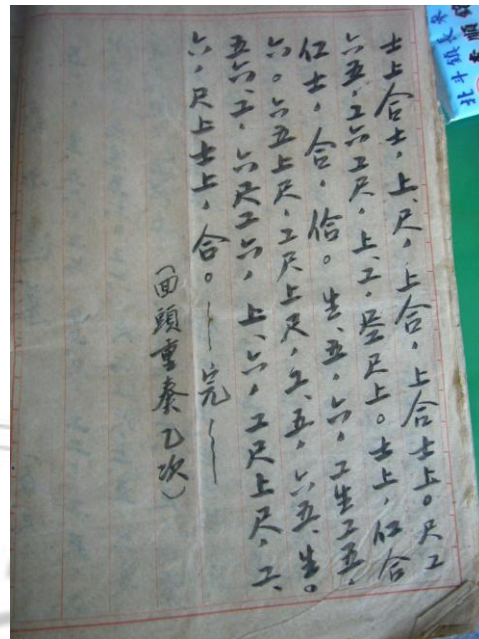 士上合士，上、尺，上合，上合士上。尺工
六五，工六工尺，上、工，尺工尺上。士上，仩合
仩士，合，佮。生、五，六，工生工五，
六。六五上尺，工尺上尺，工、五，六五、生。
五六、工，六尺工六，上、六，工尺上尺，工、
六，尺上士上，合。～完～
（面頭重奏乙次）
北斗鎮長來